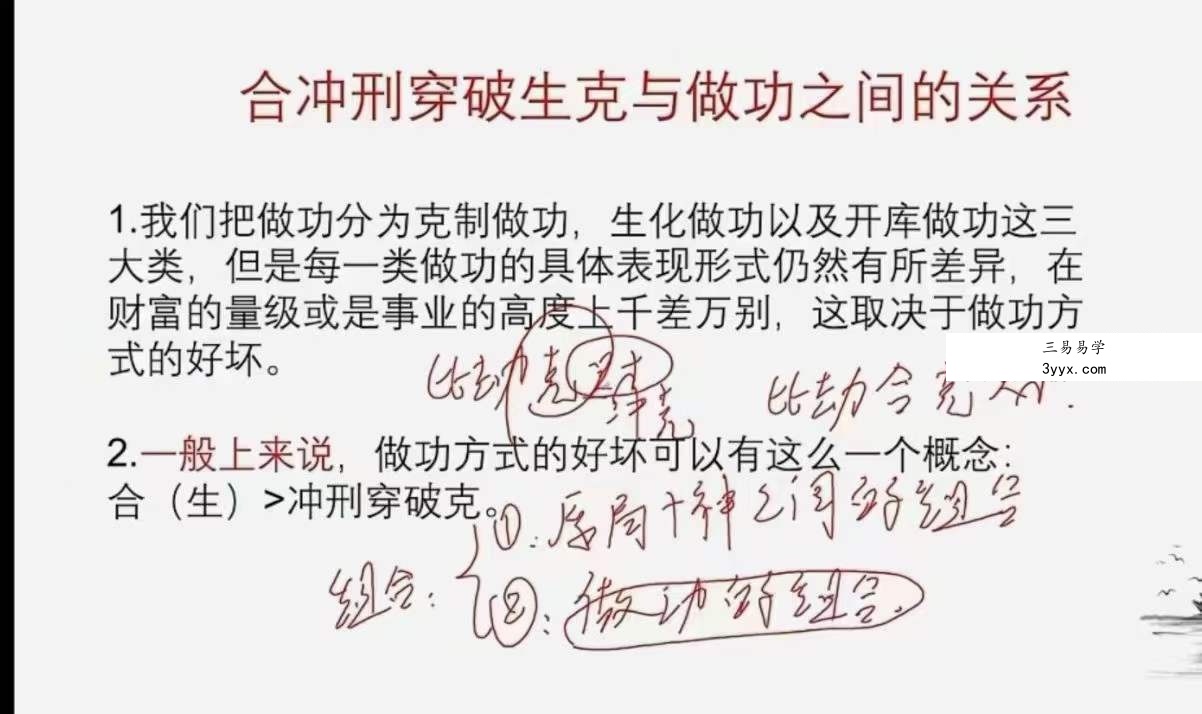 合冲刑穿破生克与做功之间的关系
1.我们把做功分为克制做功，生化做功以及开库做功这三
大类，但是每一类做功的具体表现形式仍然有所差异，在
财富的量级或是事业的高度上千差万别，这取决于做功方
式的好坏。
三易易学
3yyx.com
比劫克
冲克
比劫合克
2.一般上来说，做功方式的好坏可以有这么一个概念：
合（生）>冲刑穿破克。
①:原局十神之间的组合
组合:
②:做功的组合.